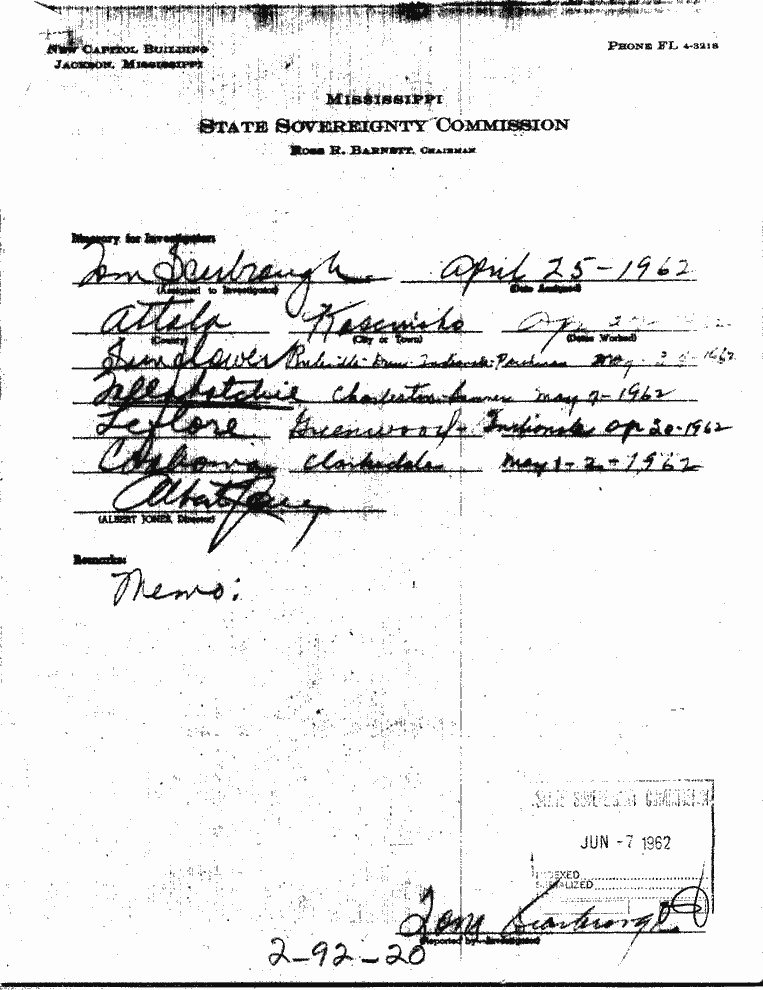 NEW CAPITOL BUILDING
JACKSON, MISSISSIPPI
PHONE FL 4-3218
MISSISSIPPI
STATE SOVEREIGNTY COMMISSION
ROSS R. BARNETT, CHAIRMAN
Itinerary for Investigator:
Tom Scarbrough April 25-1962
(Assigned to Investigator) (Date Assigned)
Attala Kosciusko 1962
(County) (City or Town) (Dates Worked)
Sunflower Ruleville-Drew-Indianola-Parchman May 1962
Tallahatchie Charleston-Sumner May 2-1962
Leflore Greenwood-Indianola Ap 30-1962
Coahoma Clarksdale May 1-2-1962
Albert Jones
(ALBERT JONES, Director)
Remarks:
Memo:
STATE SOVEREIGNTY COMMISSION
JUN -7 1962
INDEXED
SERIALIZED
Tom Scarbrough
(Reported by—Investigator)
2-92-20